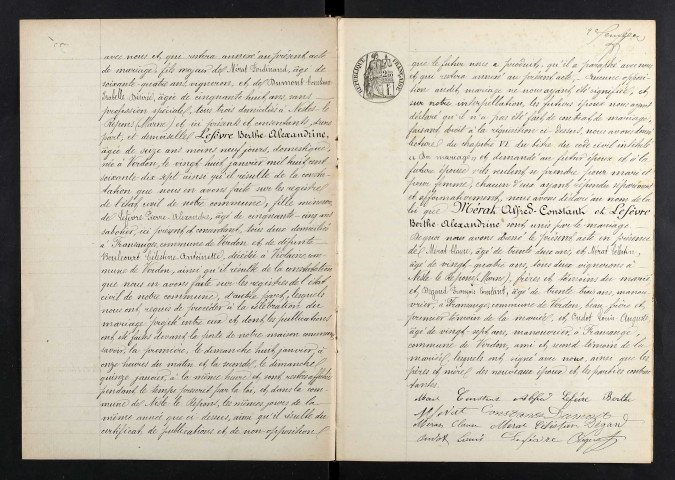 avec nous et que restera annexé au présent acte
de mariage, fils majeur de Morat Ferdinand, âgé de
soixante quatre ans, vigneron, et de Dumont Constance
âgée de cinquante huit ans, sans
profession spéciale, tous trois domiciliés à Nesle le
Repons (Marne) et ici présents et consentants, d'une
part, et demoiselle Lefèvre Berthe-Alexandrine,
âgée de seize ans moins neuf jours, domestique,
née à Verdon, le vingt huit janvier mil huit cent
soixante dix sept ainsi qu'il résulte de la consta-
tation que nous en avons faite sur les registres de
l'état civil de notre commune, fille mineure
de Lefèvre Pierre-Alexandre, âgé de cinquante-cinq ans
sabotier, ici présent et consentant, tous deux domiciliés
à Franvauge, commune de Verdon et de défunte
Boulouart Célestine-Antoinette, décédée à Violaine, com-
mune de Verdon, ainsi qu'il résulte de la constatation
que nous en avons faite sur les registres de l'état
civil de notre commune, d'autre part, lesquels
nous ont requis de procéder à la célébration du
mariage projeté entre eux et dont les publications
ont été faites devant la porte de notre maison commune
savoir, la première, le dimanche huit janvier, à
onze heures du matin et la seconde, le dimanche
quinze janvier, à la même heure et sont restées affichées
pendant le temps prescrit par la loi, et dans la com-
mune de Nesle le Repons, les mêmes jours de la
même année que ci dessus, ainsi qu'il résulte du
certificat de publications et de non-opposition
RÉPUBLIQUE FRANÇAISE
que le futur nous a produit, qu'il a paraphé avec nous
et que restera annexé au présent acte, Aucune opposi-
tion audit mariage ne nous ayant été signifiée, et
sur notre interpellation, les futurs époux nous ayant
déclaré qu'il n'a pas été fait de contrat de mariage,
faisant droit à la réquisition ci dessus, nous avons donné
lecture du chapitre VI du titre du code civil intitulé
« Du mariage » et demandé au futur époux et à la
future épouse s'ils veulent se prendre pour mari et
pour femme, chacun d'eux ayant répondu séparément
et affirmativement, nous avons déclaré au nom de la
loi que Morat Alfred-Constant et Lefèvre
Berthe-Alexandrine sont unis par le mariage.
De quoi nous avons dressé le présent acte en présence
de Morat Claire, âgé de trente deux ans, et Morat Célestin,
âgé de vingt quatre ans, tous deux vignerons à
Nesle le Repons (Marne), frères et témoins du marié
et François Constant, âgé de trente trois ans, manou-
vrier, à Franvauge, commune de Verdon, beau-frère et
premier témoin de la mariée, et Oudot Louis Auguste,
âgé de vingt sept ans, manouvrier, à Franvauge,
commune de Verdon, ami et second témoin de la
mariée, lesquels ont signé avec nous, ainsi que les
pères et mère des nouveaux époux et les parties contrac-
tantes.
Morat Constant Alfred Lefèvre Berthe
Morat Constance Dumont
Morat Claire Morat Célestin
Oudot Louis Lefèvre